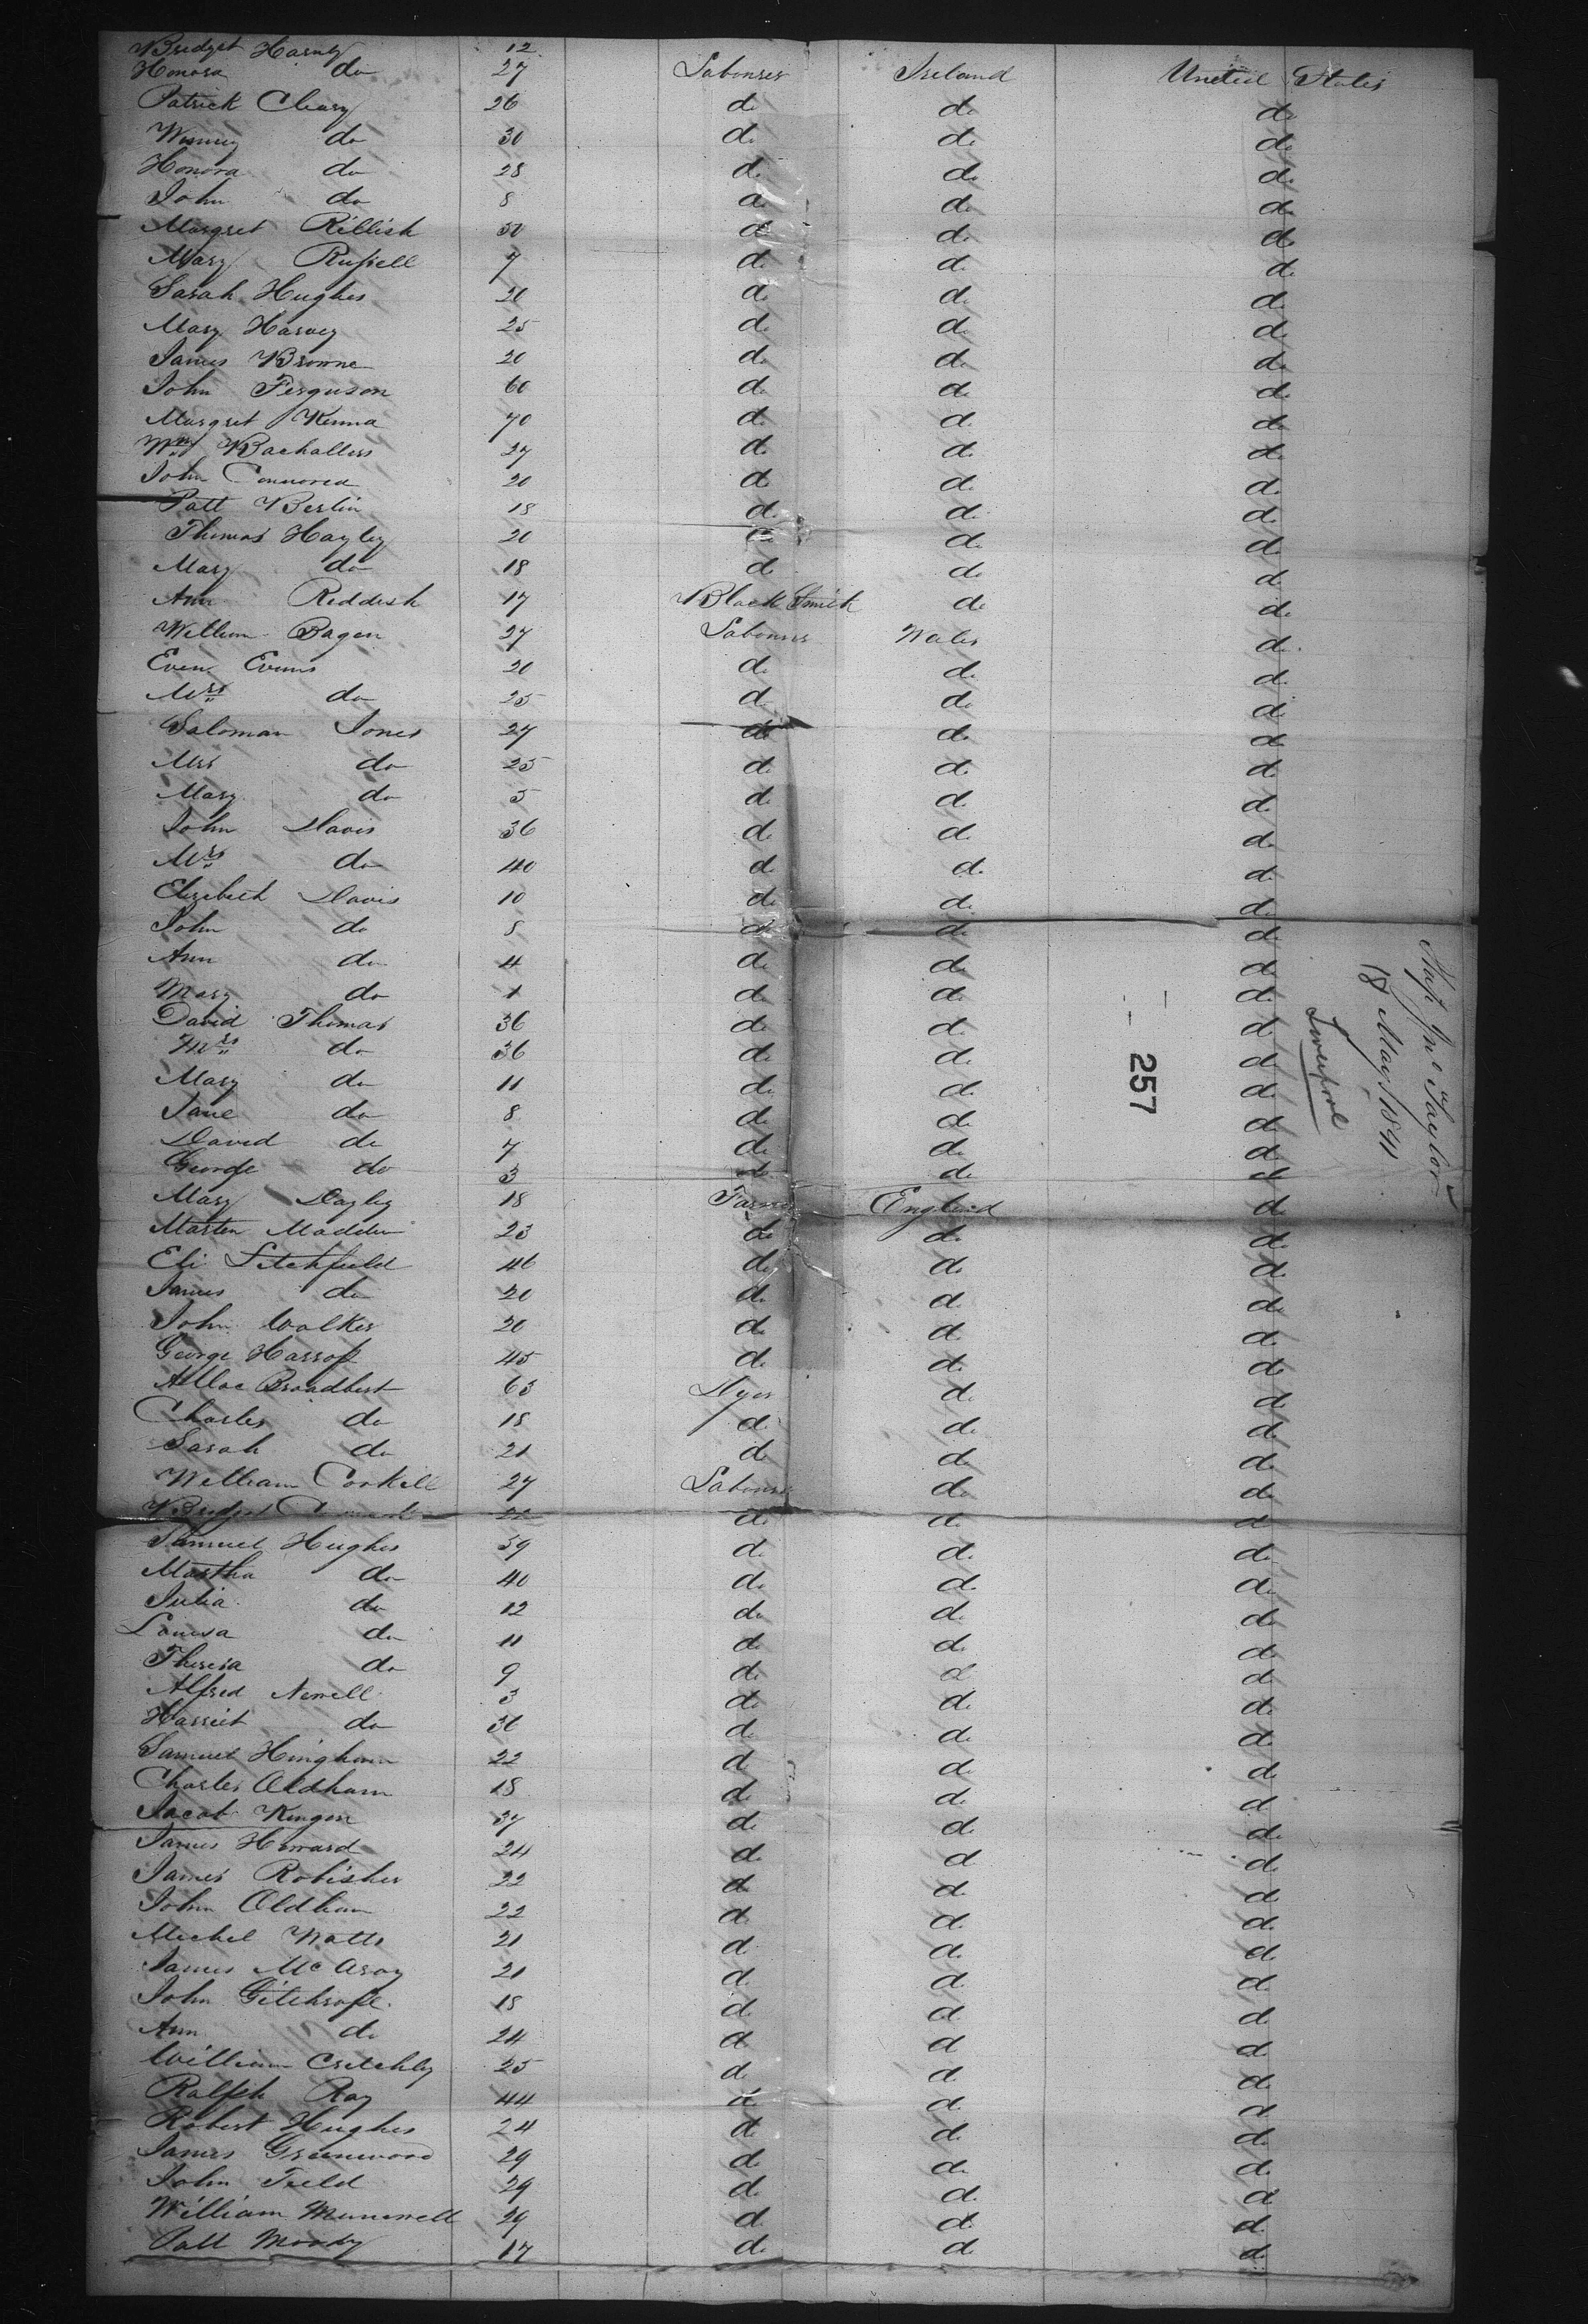 Bridget Harnly 12
Honora do 27 Labourer Ireland United States
Patrick Cleary 26 do do do
Winney do 30 do do do
Honora do 28 do do do
John do 8 do do do
Margret Rillish 50 do do do
Mary Russell 7 do do do
Sarah Hughes 20 do do do
Mary Harvey 25 do do do
James Browne 20 do do do
John Ferguson 60 do do do
Margret Kenna 70 do do do
Wm Bachallers 27 do do do
John 20 do do do
Patt Berlin 18 do do do
Thomas Hayley 20 do do do
Mary do 18 do do do
Ann Reddish 17 Black Smith do do
William Bagen 27 Labourer Wales do
Even Evans 20 do do do
Mrs do 25 do do do
Saloman Jones 27 do do do
Mrs do 25 do do do
Mary do 5 do do do
John Davis 36 do do do
Mrs do 40 do do do
Elizabeth Davis 10 do do do
John do 8 do do do
Ann do 4 do do do
Mary do 1 do do do
David Thomas 36 do do do
Mrs do 36 do do do
Mary do 11 do do do
Jane do 8 do do do
David do 7 do do do
George do 3 do do do
Mary Dayley 18 Farmer England do
Marten Madden 23 do do do
Eli Litchfield 46 do do do
James do 20 do do do
John Walker 20 do do do
George Harrop 45 do do do
Broadbent 63 Dyer do do
Charles do 18 do do do
Sarah do 21 do do do
William Corkill 27 Labourer do do
Bridget 22 do do do
Samuel Hughes 39 do do do
Martha do 40 do do do
Julia do 12 do do do
Louisa do 11 do do do
Theresa do 9 do do do
Alfred Newell 3 do do do
Harriet do 36 do do do
Samuel Hingham 22 do do do
Charles Oldham 18 do do do
Jacob Kingon 37 do do do
James Howard 24 do do do
James Robisher 22 do do do
John Oldham 22 do do do
Michel Watts 21 do do do
James McAroy 21 do do do
John Gilthrope 18 do do do
Ann do 24 do do do
William Critchly 25 do do do
Ralph Ray 44 do do do
Robert Hughes 24 do do do
James Greenwood 29 do do do
John Field 29 do do do
William Mummell 29 do do do
Patt Moody 17 do do do
Ship Jno Taylor
18 May 1841
Liverpool
257